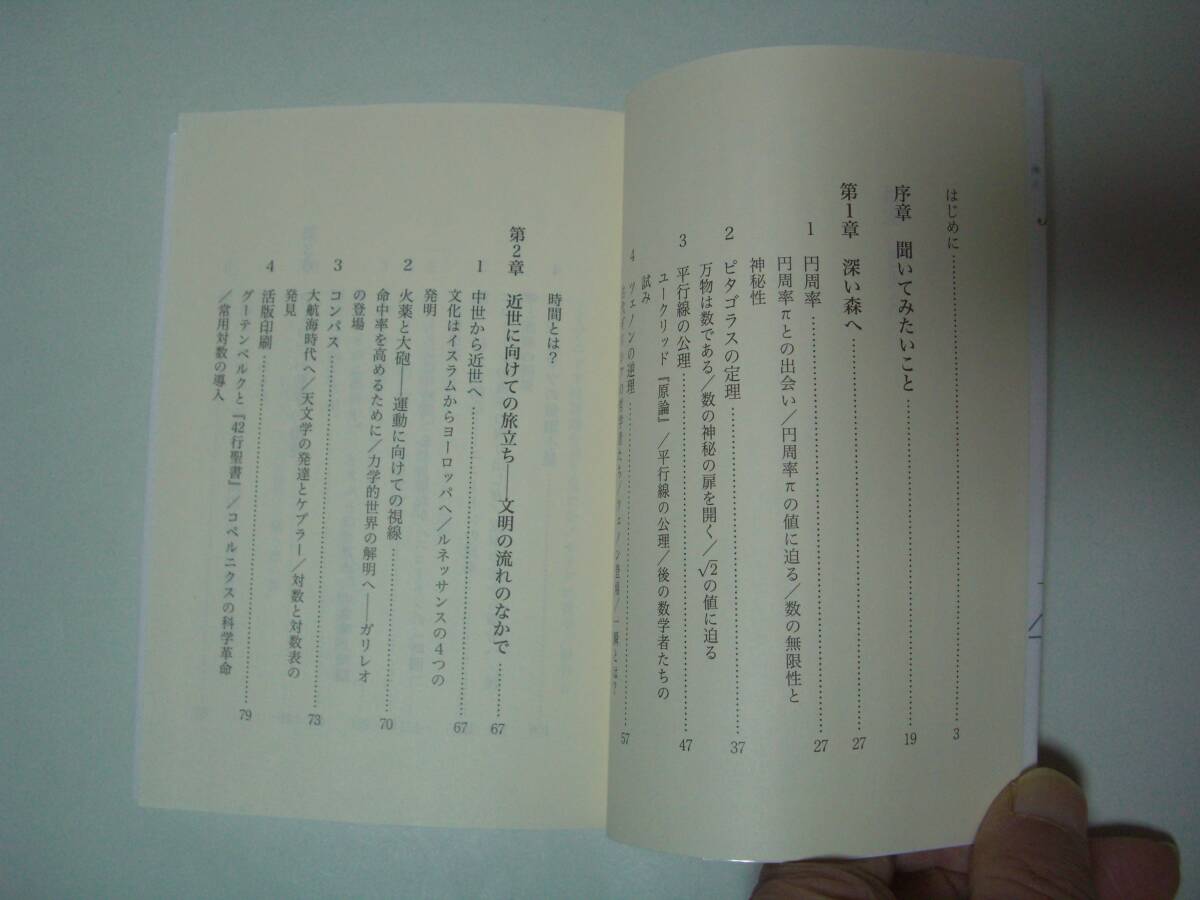 はじめに……………………3
序章 聞いてみたいこと……………………19
第1章 深い森へ……………………27
1 円周率……………………27
円周率πとの出会い/円周率πの値に迫る/数の無限性と
神秘性
2 ピタゴラスの定理……………………37
万物は数である/数の神秘の扉を開く/√2の値に迫る
3 平行線の公理……………………47
ユークリッド『原論』/平行線の公理/後の数学者たちの
試み
4 ツェノンの逆理……………………57
ツェノン登場/一瞬とは?
時間とは?
第2章 近世に向けての旅立ち――文明の流れのなかで……………………67
1 中世から近世へ……………………67
文化はイスラムからヨーロッパへ/ルネッサンスの4つの
発明
2 火薬と大砲――運動に向けての視線……………………70
命中率を高めるために/力学的世界の解明へ――ガリレオ
の登場
3 コンパス……………………73
大航海時代へ/天文学の発達とケプラー/対数と対数表の
発見
4 活版印刷……………………79
グーテンベルクと『42行聖書』/コペルニクスの科学革命
/常用対数の導入